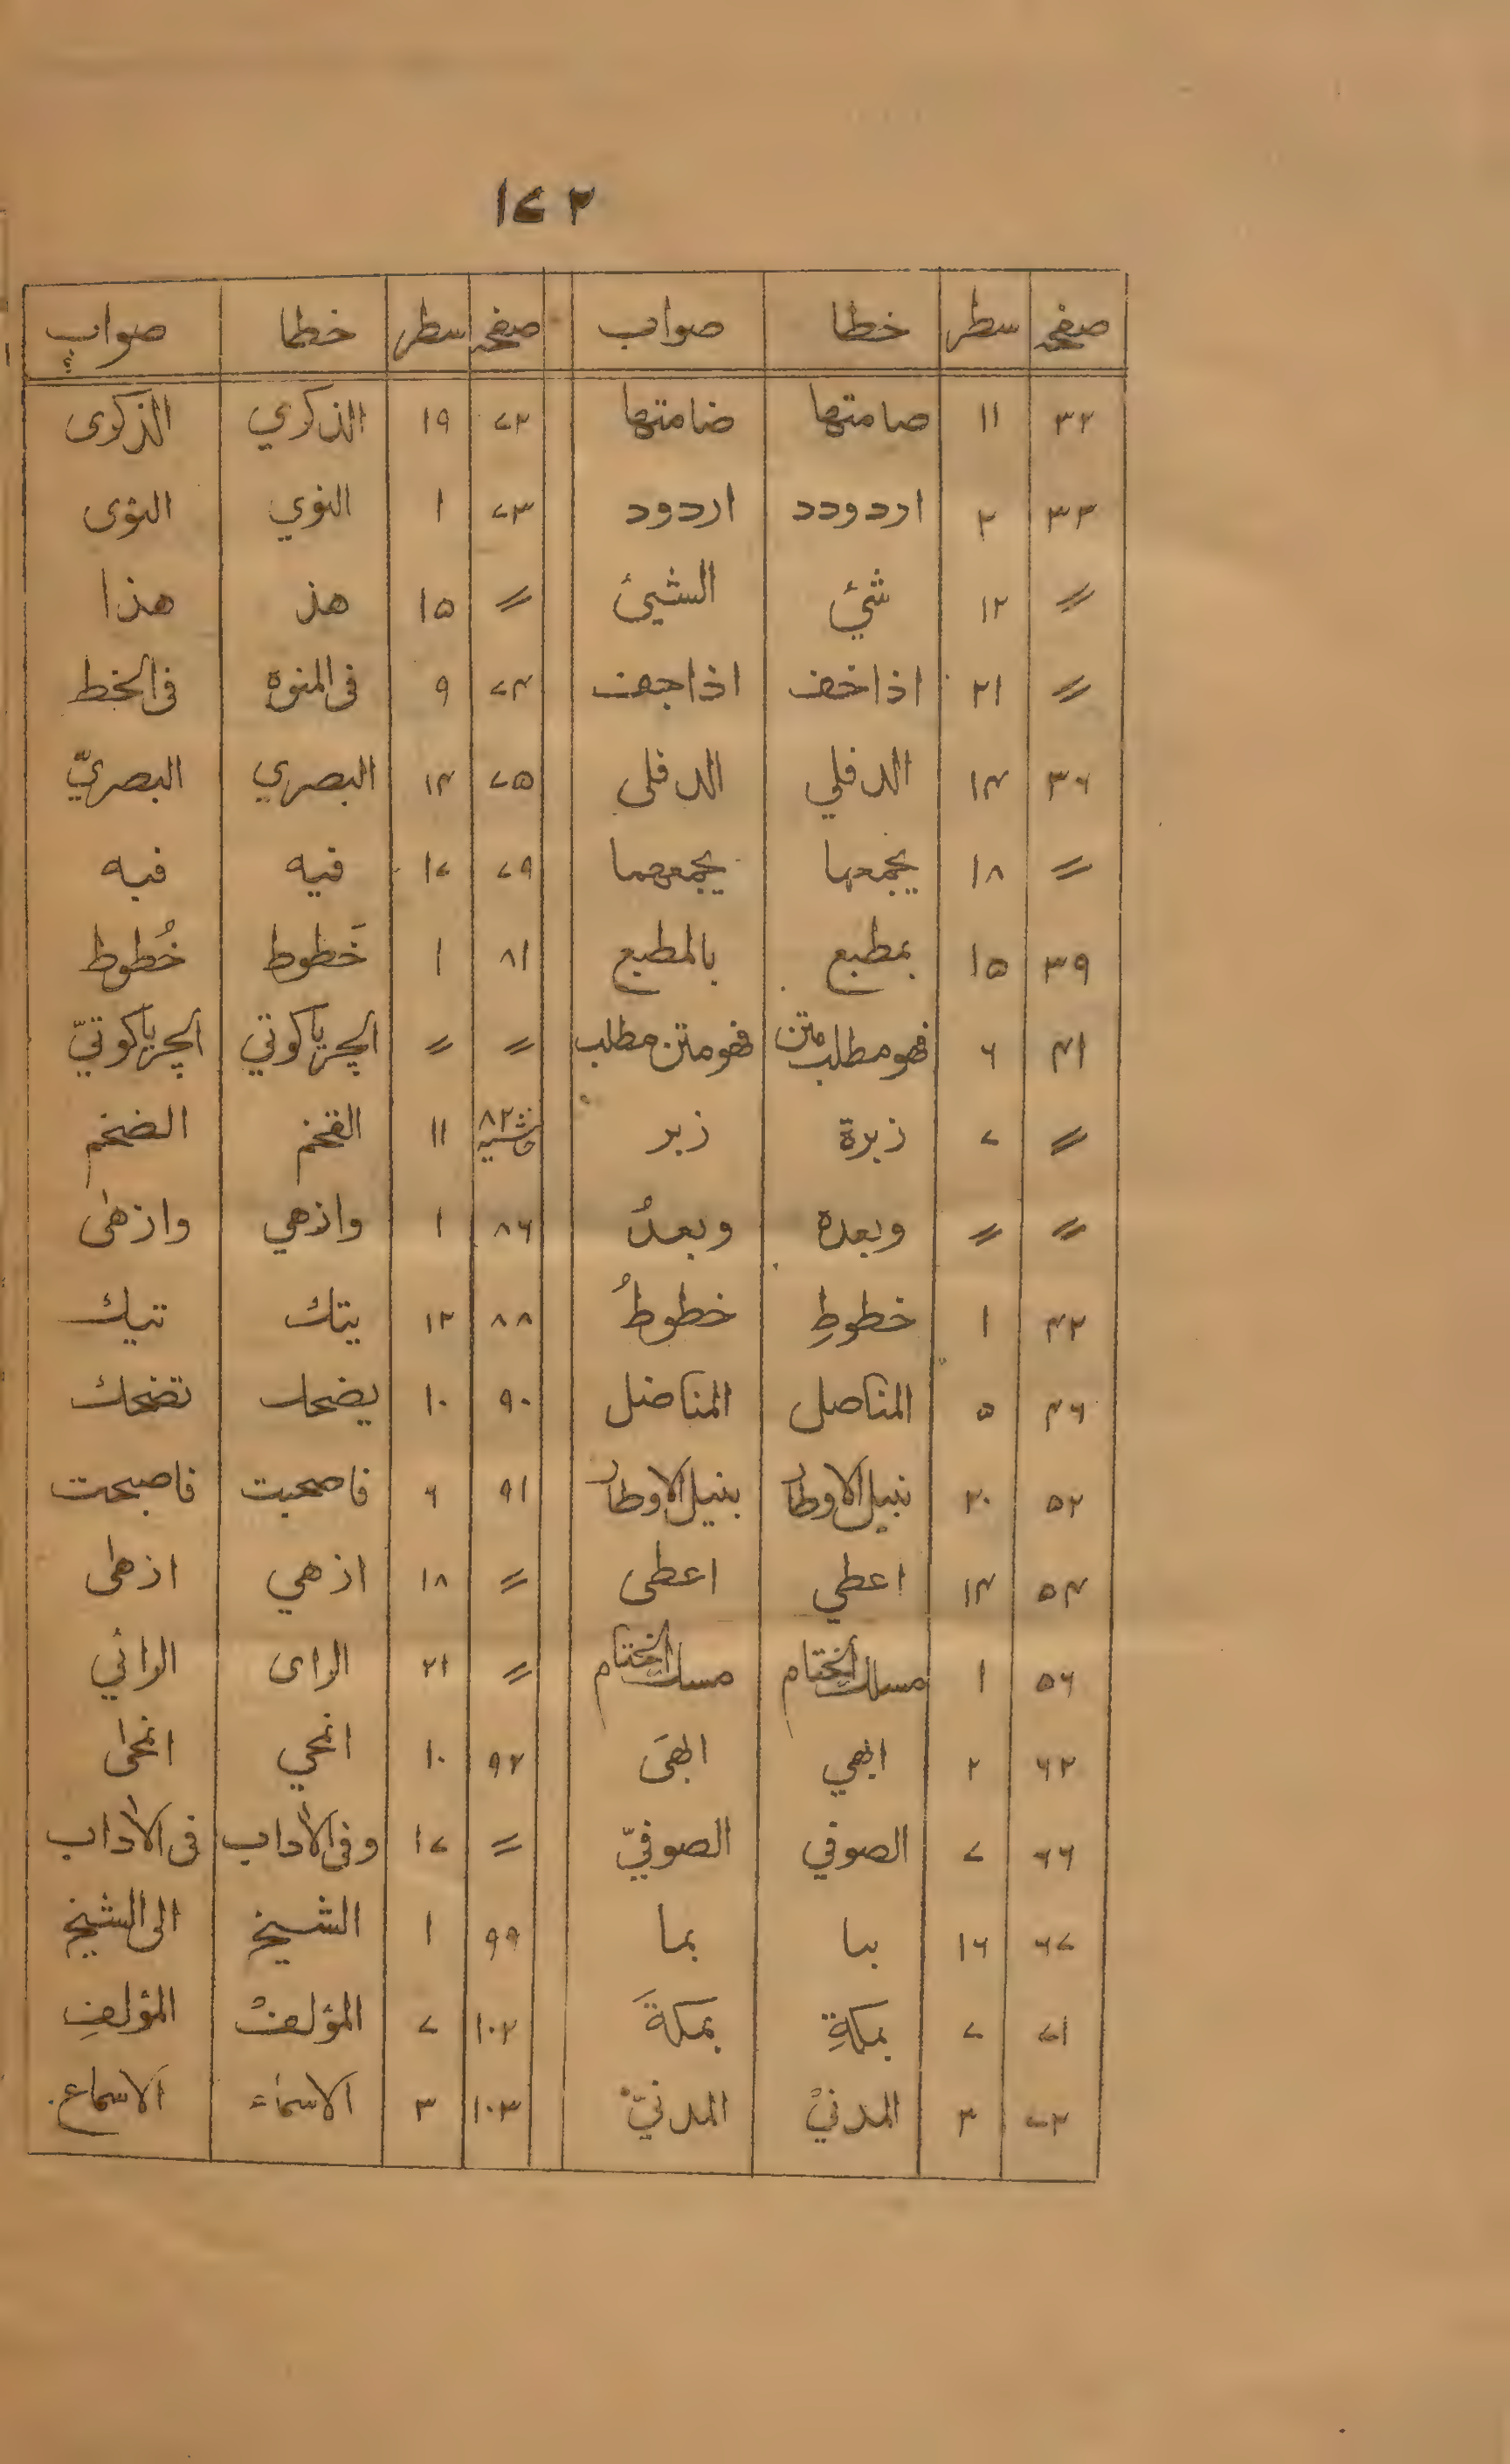 ۱۷۲
صفحہ سطر خطا صواب صفحہ سطر خطا صواب
۳۲ ۱۱ صامتها ضامتها ۷۲ ۱۹ الذكري الذكرى
۳۳ ۲ اردودد اردود ۷۳ ۱ النوي النوى
〃 ۱۲ شئي الشيئ 〃 ۱۵ هذ هذا
〃 ۲۱ اذاخف اذاجف ۷۴ ۹ فى المنوة فى الخط
۳۶ ۱۴ الدفلي الدفلى ۷۵ ۱۴ البصري البصريّ
〃 ۱۸ يجمعها يجمعهما ۷۹ ۱۷ فيه فيه
۳۹ ۱۵ بمطبع بالمطبع ۸۱ ۱ خَطوط خُطوط
۴۱ ۶ فهو مطلب متن فهو متن مطلب 〃 〃 الچرياكوتي الچرياكوتيّ
〃 ۷ زبرة زبر ۸۲ حاشيه ۱۱ الفخم الضخم
〃 〃 وبعده وبعدُ ۸۶ ۱ وازهي وازهى
۴۲ ۱ خطوطِ خطوطُ ۸۸ ۱۲ يتك تيك
۴۶ ۵ المناصل المناضل ۹۰ ۱۰ يضحك تضحك
۵۲ ۲۰ بنيل الاوطار بنيل الاوطار ۹۱ ۶ فاصحبت فاصبحت
۵۴ ۱۴ اعطي اعطى 〃 ۱۸ ازهي ازهى
۵۶ ۱ مسلك الختام مسك الختام 〃 ۲۱ الراى الرائي
۶۲ ۲ ابهي ابهىَ ۹۲ ۱۰ انحي انحىٰ
۶۶ ۷ الصوفي الصوفيّ 〃 ۱۷ وفى الاٰداب فى الاٰداب
۶۷ ۱۶ ببا بما ۹۹ ۱ الشيخ الى الشيخ
۷۱ ۷ بمكةِ بمكةَ ۱۰۲ ۷ المؤلفُ المؤلفِ
۷۲ ۳ المدنيْ المدنيّ ۱۰۳ ۳ الاسماء الاسماع